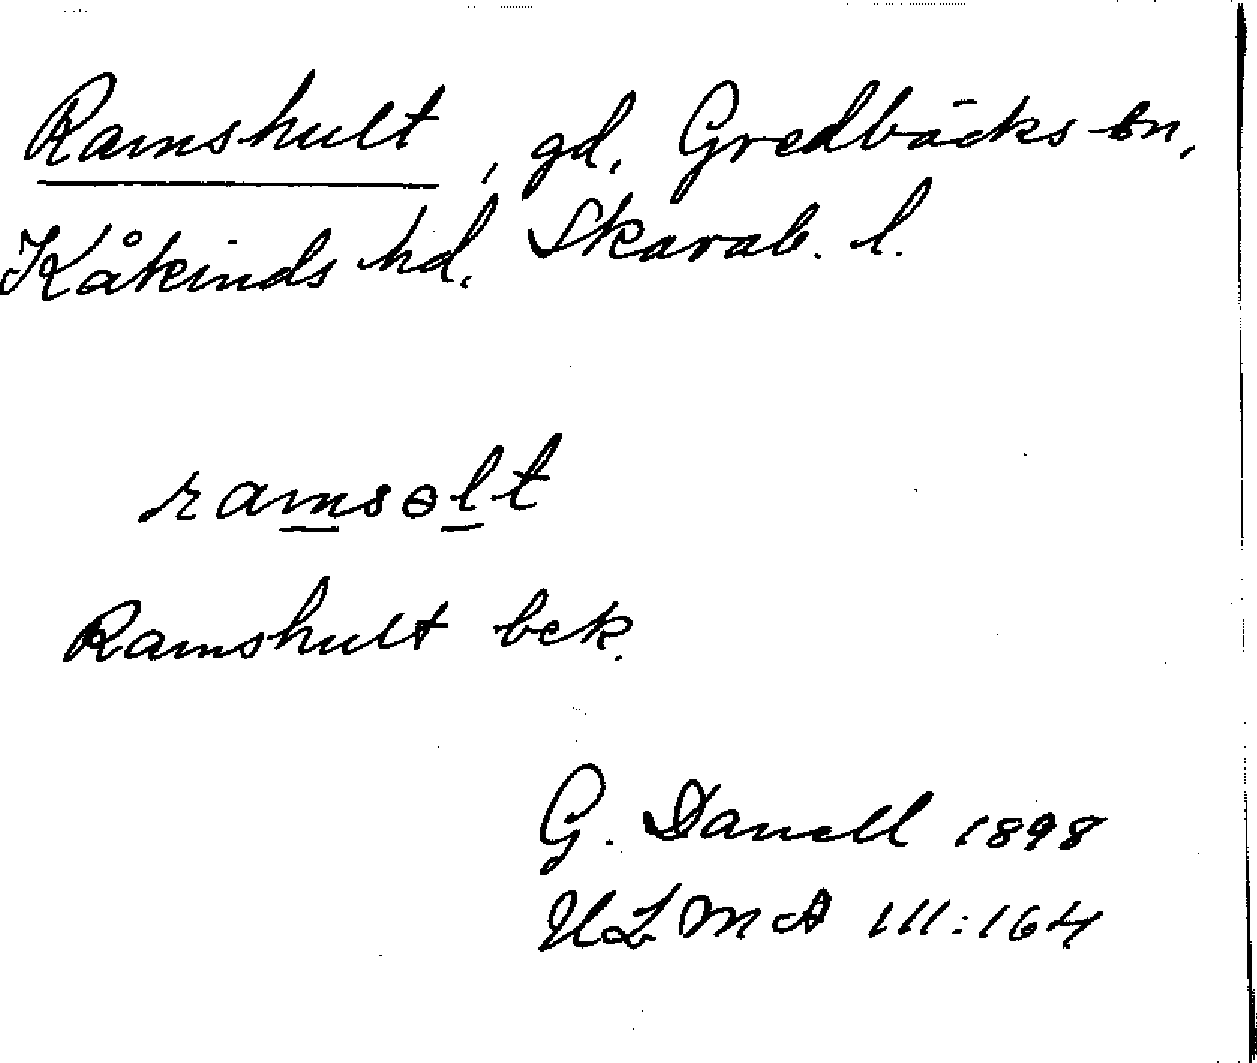 Ramshult, gd. Gredbäcks sn,
Kåkinds hd. Skarab. l.
ramsɵlt
Ramshult bek.
G. Danell 1898
ULMA 111:164